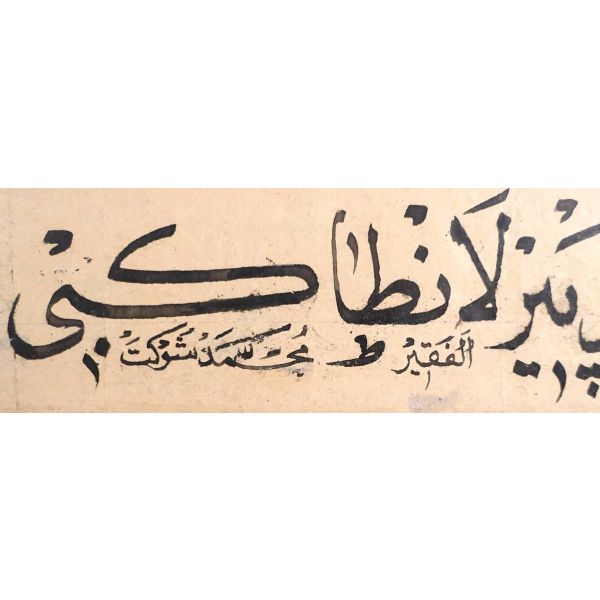 پيرلانطا كبى
الفقير ط محمد شوكت